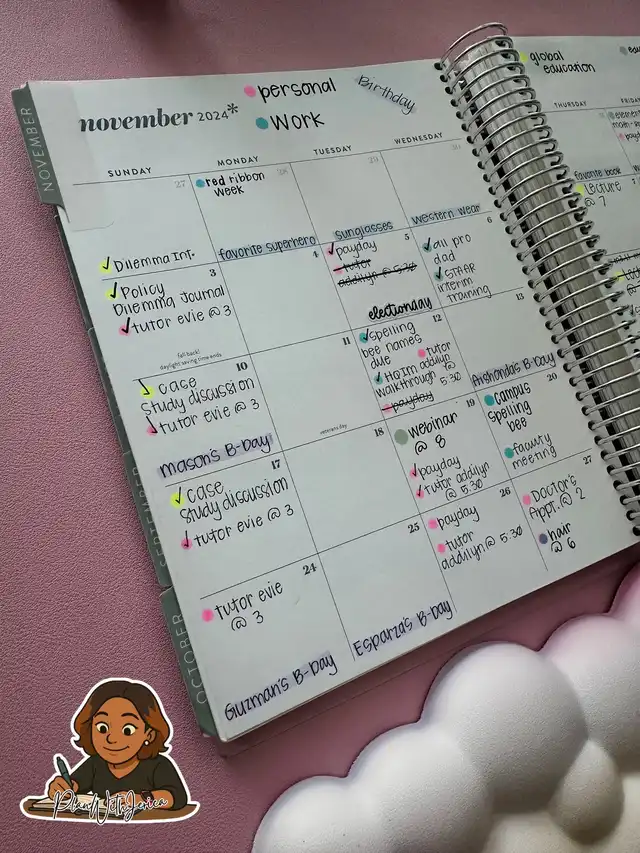 NOVEMBER
OCTOBER
november 2024*
personal
work
Birthday
SUNDAY
MONDAY
TUESDAY
WEDNESDAY
27
Dilemma Int.
28
red ribbon
week
favorite superhero
29
Sunglasses
30
western wear
3
Policy
Dilemma Journal
tutor evie @ 3
fall back!
daylight saving time ends
4
5
payday
tutor
addilyn @ 5:30
electionday
6
all pro
dad
STAAR
interim
training
10
case
study discussion
tutor evie @ 3
Mason's B-day
11
veterans day
12
spelling
bee names
due
tutor
addilyn
@ 5:30
HQIM
walkthrough
payday
13
Aishanda's B-day
17
case
study discussion
tutor evie @ 3
18
19
webinar
@ 8
payday
tutor addilyn
@ 5:30
20
campus
spelling
bee
faculty
meeting
24
tutor evie
@ 3
Guzman's B-day
25
Esparza's B-day
26
payday
tutor
addilyn @ 5:30
27
Doctor's
Appt. @ 2
hair
@ 6
global
education
THURSDAY
favorite book
Lecture
@ 7
PlanWithJerica